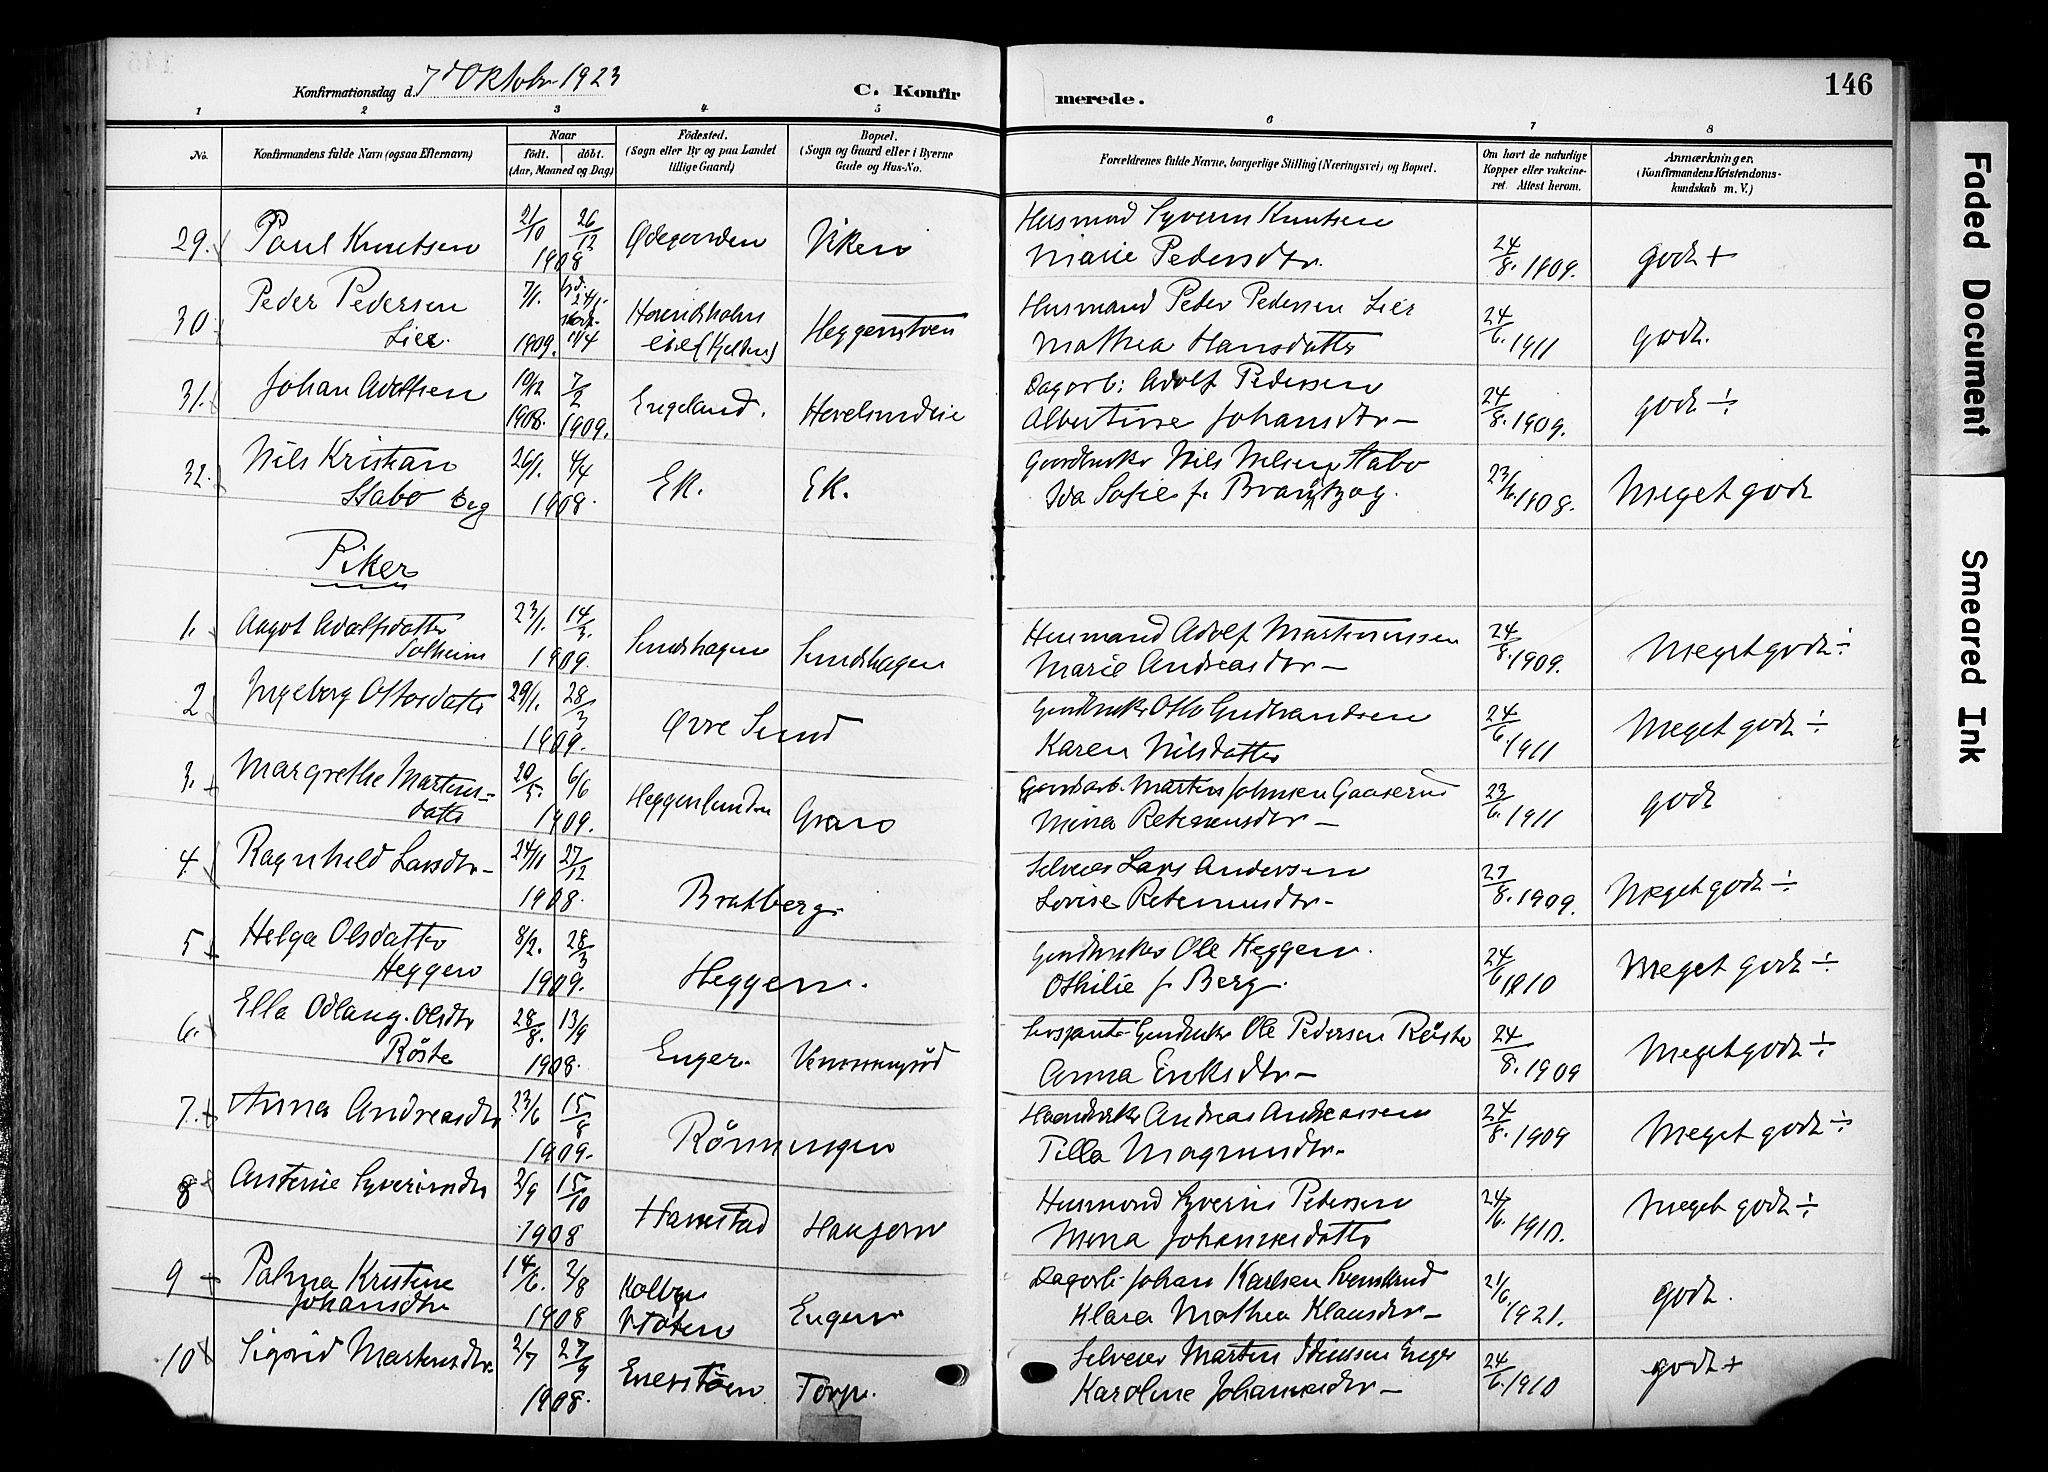 146
Konfirmationsdag d. 7d Oktobr 1923
C. Konfirmerede.
1 2 3 4 5 6 7 8
No.
Konfirmandens fulde Navn (ogsaa Efternavn)
Naar
født. døbt.
(Aar, Maaned og Dag)
Födested.
(Sogn eller By og paa Landet
tillige Gaard)
Bopæl.
(Sogn og Gaard eller i Byerne
Gade og Hus-No.
Forældrenes fulde Navne, borgerlige Stilling (Næringsvei) og Bopæl.
Om havt de naturlige
Kopper eller vakcine-
ret. Attest herom.
Anmærkninger.
(Konfirmandens Kristendoms-
kundskab m. V.)
29. Paul Knutsen 21/10 26/12 1908 Ødegaarden Viken Husmand Syverin Knutsen
Marie Pedersdtr. 24/8. 1909. godt +
30 Peder Pedersen
Lier. 7/1. 1909. 24/1 11/4 Heggenstøen Husmand Peder Pedersen Lier
Mathea Hansdatter 24/6. 1911 godt.
31. Johan Adolfsen 10/12 1908. 7/2 1909. Engeland. Hovelsrudeie Dagarb: Adolf Pedersen
Albertine Johansdtr – 24/8. 1909. godt ÷
32. Nils Kristian
Stabo Eeg 26/1. 4/4 1908. Ek. Ek. Gaardbruker Nils Nilsen Stabo
Ida Sofie f. 23/6. 1908. Meget godt
Piker
1. Aagot Adolfsdatter
Solheim 23/1. 14/3. 1909. Sundhagen Sundhagen Husmand Adolf Martinussen
Marie Andreasdtr – 24/8. 1909. Meget godt ÷
2 Ingeborg Ottosdatter 29/1. 28/3 1909. Øvre Sund Gardbruker Otto Gudbrandsen
Karen Nilsdatter 24/6. 1911 Meget godt ÷
3. Margrethe Martins=
datter 20/5. 6/6 1909. Heggenlunden Gran Gaardarb. Martin Johnsen Gaaserud
Mina 23/6. 1911 godt
4. Ragnhild Larsdtr – 24/11 27/12 1908. Bratberg. Selveier Lars Andersen
Lovise 27/8. 1909. Meget godt ÷
5 Helga Olsdatter
Heggen 8/2. 28/3 1909. Heggen. Gardbruker Ole Heggen.
Othilie f. Berg. 24/6 1910 Meget godt ÷
6. Ella Odlaug. Olsdtr
Røste 28/8. 13/9 1908. Enger. Gardbruker Ole Pedersen Røste
Anna Eriksdtr – 24/8. 1909 Meget godt ÷
7. Anna Andreasdtr 23/6 15/8 1909. Rønningen Haandverker Andreas Andreassen
Tilla Magnusdtr – 24/8. 1909 Meget godt ÷
8 Antenie Syverinsdtr 2/9 15/10 1908 Hamstad Haugern Husmand Syverin Pedersen
Mina Johannesdatter 24/6. 1910. Meget godt ÷
9 Palma Kristine
Johansdtr 14/6. 2/8 1908 Kolbu
V Toten Engen Dagarb. Johan Karlsen Svenskrud
Klara Mathea Klausdtr – 21/6. 1921. godt.
10 Sigrid Martinsdtr. 2/7 27/9 1908. Enerstøen Torp. Selveier Martin Enger
Karoline Johannesdtr – 24/6. 1910 godt +
Faded Document
Smeared Ink